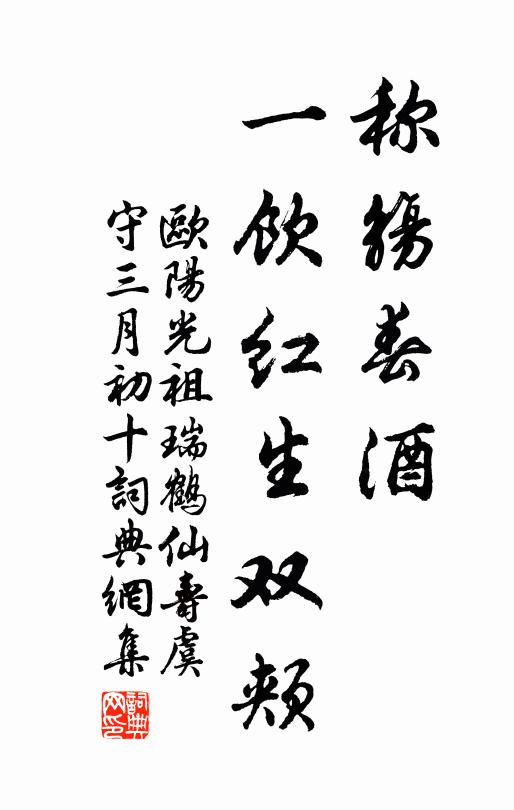 称觞春酒
一饮红生双颊
歐陽光祖瑞鶴仙壽虞
守三月初十詞典網集
詞典
网印